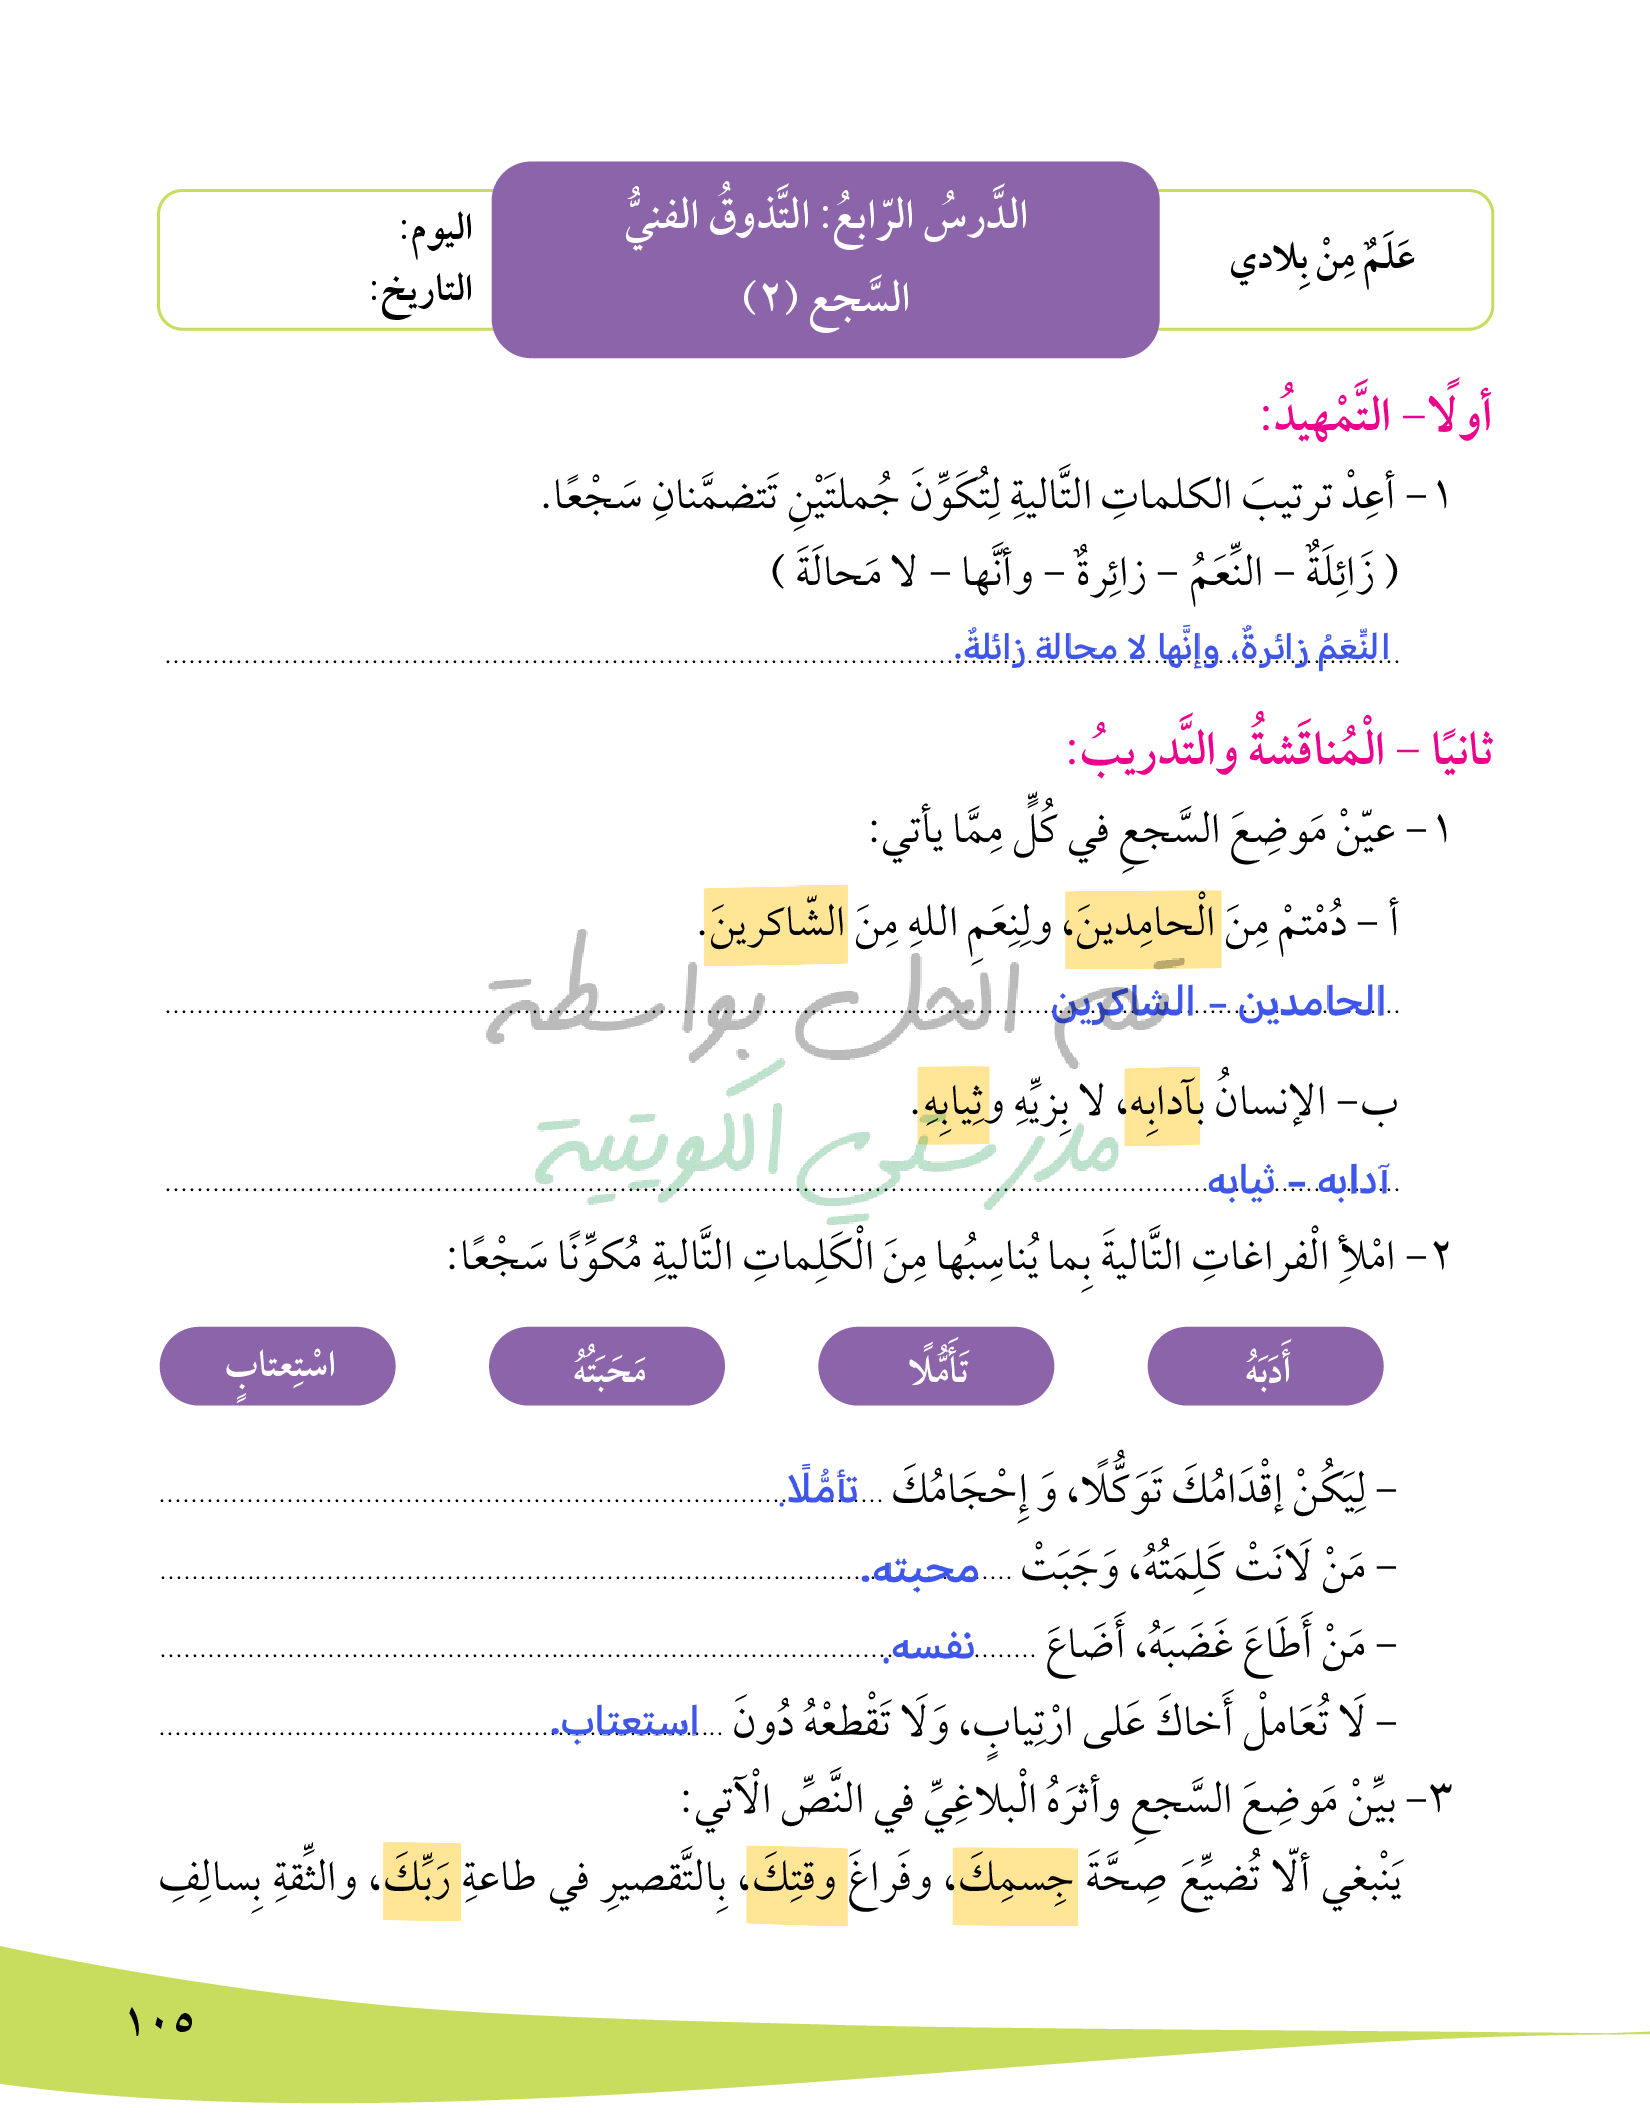 عَلَمٌ مِنْ بِلادي
الدَّرسُ الرّابعُ: التَّذوقُ الفنيُّ
السَّجع (٢)
اليوم:
التاريخ:
أولًا– التَّمْهيدُ:
١– أعِدْ ترتيبَ الكلماتِ التَّاليةِ لِتُكَوِّنَ جُملتَيْنِ تَتضمَّنانِ سَجْعًا.
( زَائِلَةٌ – النِّعَمُ – زائِرةٌ – وأنَّها – لا مَحالَةَ )
النِّعَمُ زائرةٌ، وإنَّها لا محالة زائلةٌ.
ثانيًا – الْمُناقَشةُ والتَّدريبُ:
١– عيّنْ مَوضِعَ السَّجعِ في كُلٍّ مِمَّا يأتي:
أ – دُمْتمْ مِنَ الْحامِدينَ، ولِنِعَمِ اللهِ مِنَ الشّاكرينَ.
الحامدين – الشاكرين
تم الحل بواسطة
ب– الإنسانُ بآدابِه، لا بِزيِّهِ وثِيابِهِ.
مدرستي الكويتية
آدابه – ثيابه
٢– امْلأِ الْفراغاتِ التَّاليةَ بِما يُناسِبُها مِنَ الْكَلِماتِ التَّاليةِ مُكوِّنًا سَجْعًا:
أَدَبَهُ
تَأَمُّلًا
مَحَبَتُهُ
اسْتِعتابٍ
– لِيَكُنْ إقْدَامُكَ تَوَكُّلًا، وَ إِحْجَامُكَ تأمُّلًا.
– مَنْ لَانَتْ كَلِمَتُهُ، وَجَبَتْ محبته.
– مَنْ أَطَاعَ غَضَبَهُ، أَضَاعَ نفسه.
– لَا تُعَاملْ أَخاكَ عَلى ارْتِيابٍ، وَلَا تَقْطعْهُ دُونَ استعتاب.
٣– بيِّنْ مَوضِعَ السَّجعِ وأثرَهُ الْبلاغِيِّ في النَّصِّ الْآتي:
يَنْبغي ألّا تُضيِّعَ صِحَّةَ جِسمِكَ، وفَراغَ وقتِكَ، بِالتَّقصيرِ في طاعةِ رَبِّكَ، والثِّقةِ بِسالِفِ
١٠٥